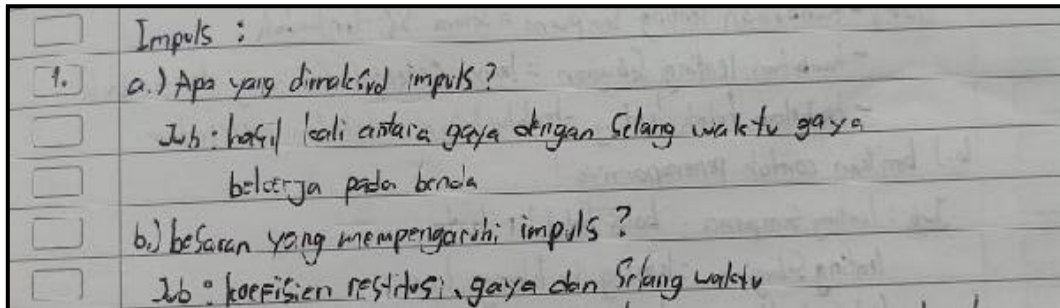 Impuls :
1. a.) Apa yang dimaksud impuls?
Jwb : hasil kali antara gaya dengan Selang waktu gaya
bekerja pada benda
b.) besaran yang mempengaruhi impuls ?
Jwb : koefisien restitusi, gaya dan Selang waktu